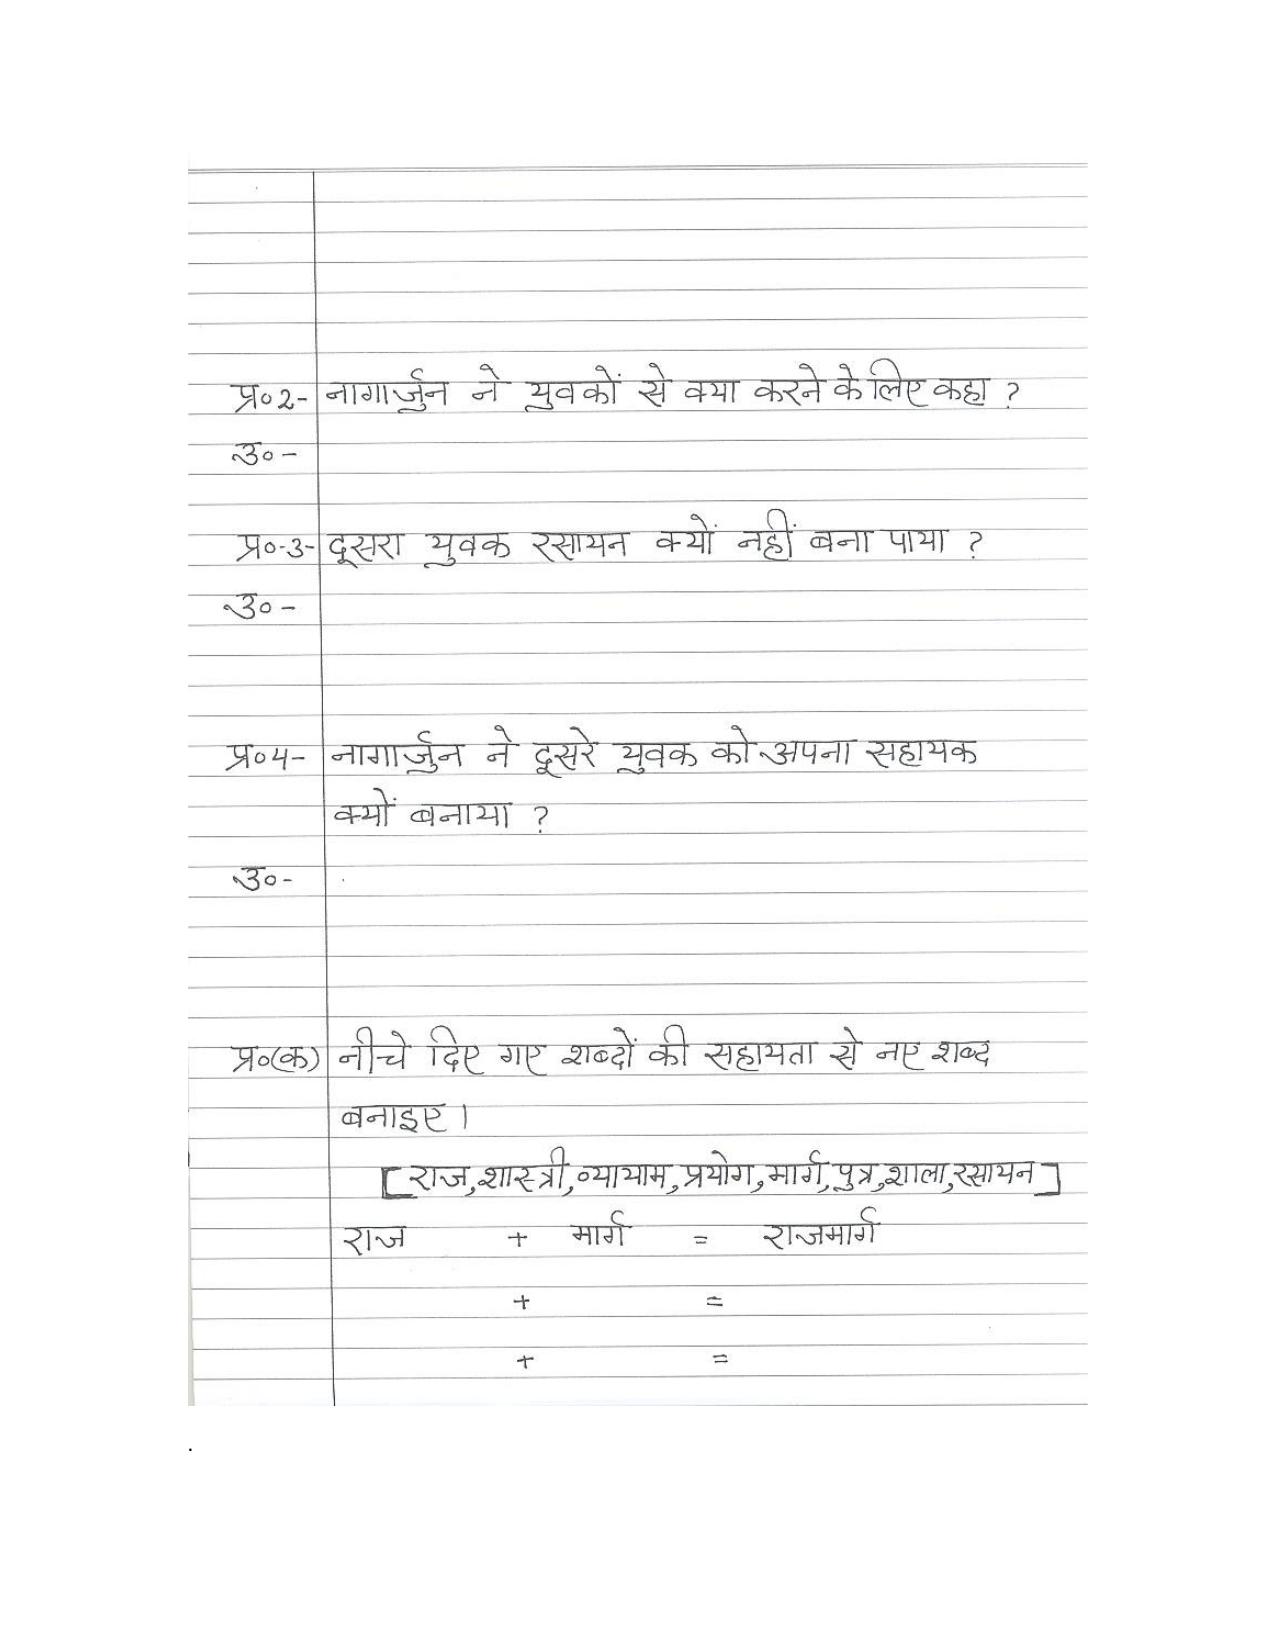 प्र०2- नागार्जुन ने युवकों से क्या करने के लिए कहा ?
उ०-
प्र०-3- दूसरा युवक रसायन क्यों नहीं बना पाया ?
उ०-
प्र०4- नागार्जुन ने दूसरे युवक को अपना सहायक
क्यों बनाया ?
उ०-
प्र०(क) नीचे दिए गए शब्दों की सहायता से नए शब्द
बनाइए।
[राज,शास्त्री,व्यायाम,प्रयोग,मार्ग,पुत्र,शाला,रसायन]
राज + मार्ग = राजमार्ग
+ =
+ =